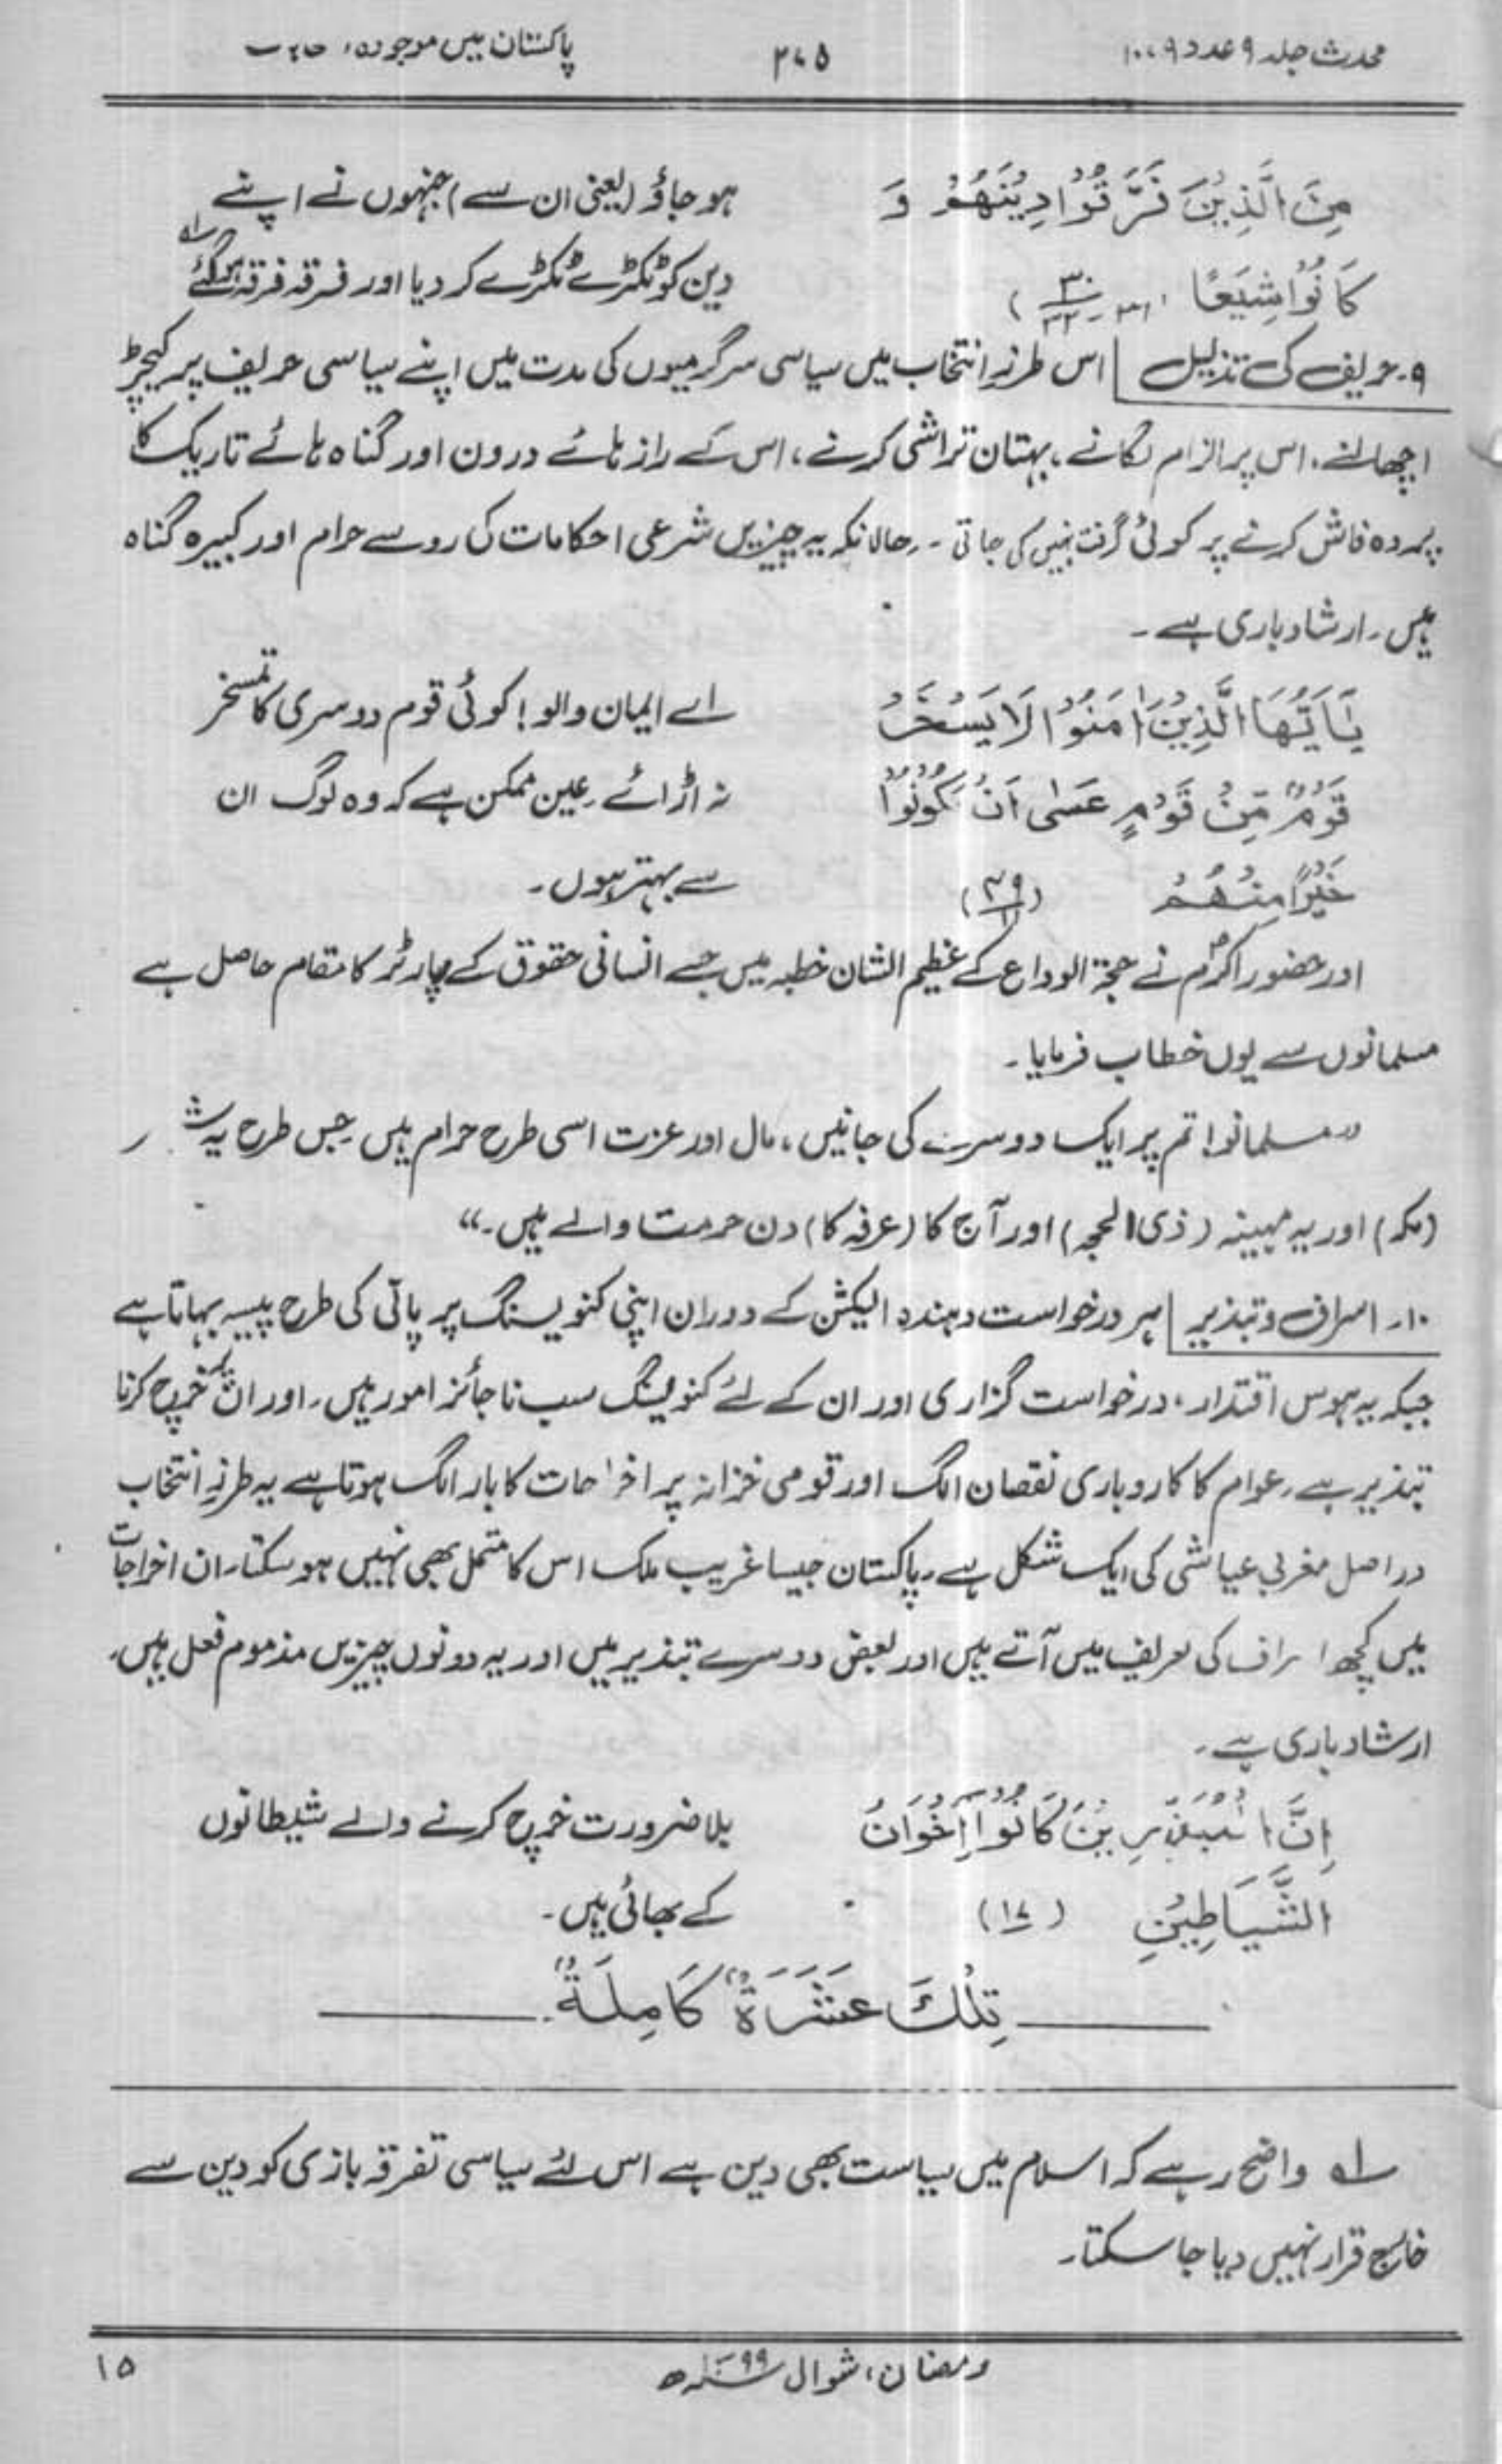 محدث جلد ۹ عدد ۹، ۱۰
۳۷۵
پاکستان میں موجودہ
مِنَ الَّذِيْنَ فَرَّقُوْا دِيْنَهُمْ وَ
ہو جاؤ (یعنی ان سے) جنہوں نے اپنے
كَانُوْا شِيَعًا
دین کو ٹکڑے ٹکڑے کر دیا اور فرقہ فرقہ ہو گئے ؂۱
۹۔ حریف کی تذلیل اس طرزِ انتخاب میں سیاسی سرگرمیوں کی مدت میں اپنے سیاسی حریف پر کیچڑ
اچھالنے، اس پر الزام لگانے، بہتان تراشی کرنے، اس کے راز ہائے درون اور گناہ ہائے تاریک کا
پردہ فاش کرنے پر کوئی گرفت نہیں کی جاتی ۔ حالانکہ یہ چیزیں شرعی احکامات کی رو سے حرام اور کبیرہ گناہ
ہیں۔ ارشاد باری ہے۔
يٰاَيُّهَا الَّذِيْنَ اٰمَنُوْا لَا يَسْخَرْ
اے ایمان والو! کوئی قوم دوسری کا تمسخر
قَوْمٌ مِّنْ قَوْمٍ عَسٰى اَنْ يَّكُوْنُوْا
نہ اڑائے۔ عین ممکن ہے کہ وہ لوگ ان
خَيْرًا مِنْهُمْ (۴۹/۱۱)
سے بہتر ہوں۔
اور حضور اکرمؐ نے حجۃ الوداع کے عظیم الشان خطبہ میں جسے انسانی حقوق کے چارٹر کا مقام حاصل ہے
مسلمانوں سے یوں خطاب فرمایا۔
”مسلمانو! تم پر ایک دوسرے کی جانیں، مال اور عزت اسی طرح حرام ہیں جس طرح یہ
(مکہ) اور یہ مہینہ (ذی الحجہ) اور آج کا (عرفہ کا) دن حرمت والے ہیں۔“
۱۰۔ اسراف و تبذیر ہر درخواست دہندہ الیکشن کے دوران اپنی کنویسنگ پر پانی کی طرح پیسہ بہاتا ہے
جبکہ یہ ہوس اقتدار، درخواست گزاری اور ان کے لئے کنویسنگ سب ناجائز امور ہیں۔ اور ان پر خرچ کرنا
تبذیر ہے۔ عوام کا کاروباری نقصان الگ اور قومی خزانہ پر اخراجات کا بار الگ ہوتا ہے یہ طرزِ انتخاب
دراصل مغربی عیاشی کی ایک شکل ہے۔ پاکستان جیسا غریب ملک اس کا متحمل بھی نہیں ہو سکتا۔ ان اخراجات
میں کچھ اسراف کی تعریف میں آتے ہیں اور بعض دوسرے تبذیر میں اور یہ دونوں چیزیں مذموم فعل ہیں۔
ارشاد باری ہے۔
اِنَّ الْمُبَذِّرِيْنَ كَانُوْا اِخْوَانَ
بلا ضرورت خرچ کرنے والے شیطانوں
الشَّيَاطِيْنِ (۱۷)
کے بھائی ہیں۔
تِلْكَ عَشَرَةٌ كَامِلَةٌ
؂۱ واضح رہے کہ اسلام میں سیاست بھی دین ہے اس لئے سیاسی تفرقہ بازی کو دین سے
خارج قرار نہیں دیا جا سکتا۔
رمضان، شوال ۹۹ھ
۱۵